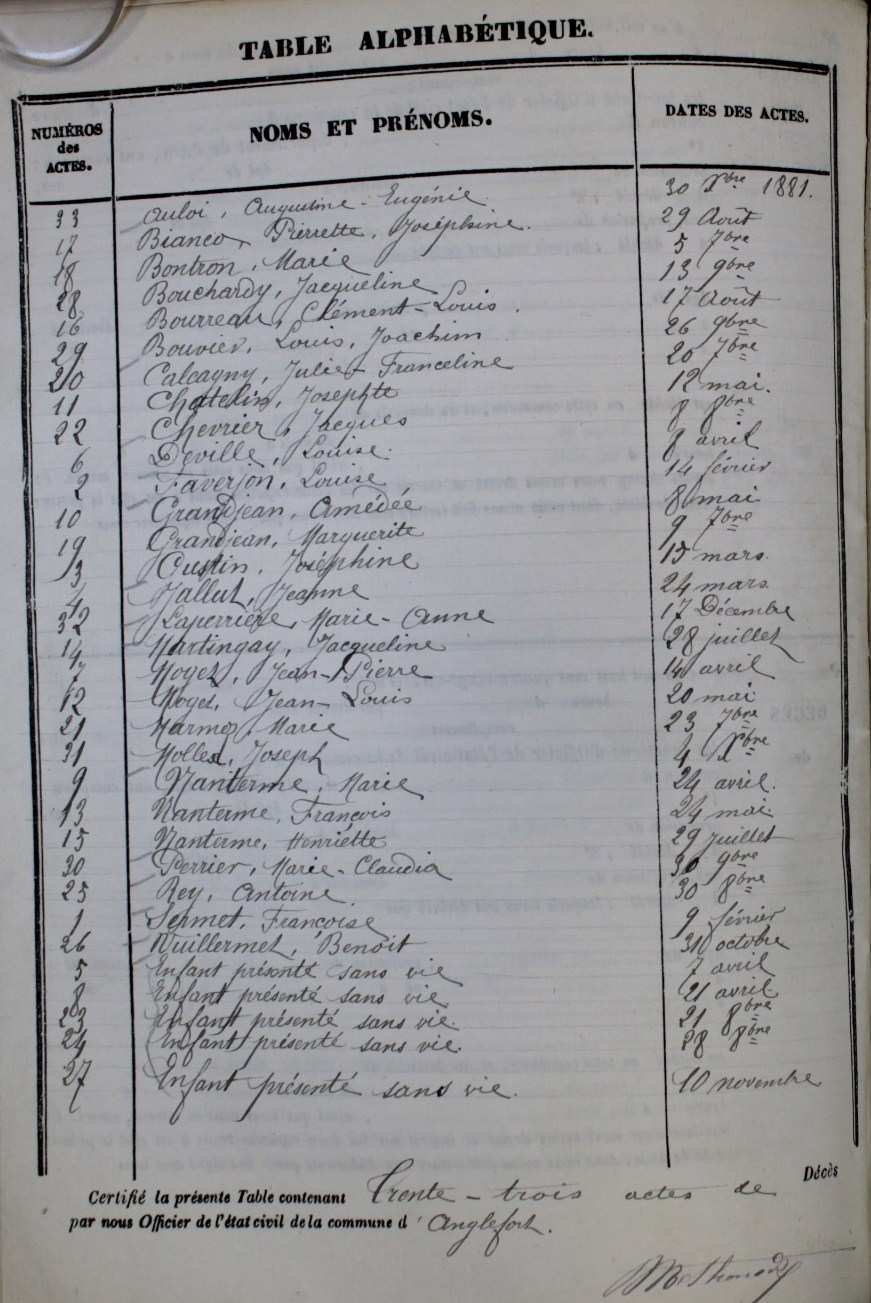 TABLE ALPHABÉTIQUE.
NUMÉROS des ACTES. NOMS ET PRÉNOMS. DATES DES ACTES.
33 Auloi, Augustine-Eugénie 30 Xbre 1881.
17 Bianco, Pierrette, Joséphine. 29 Août
18 Bontron, Marie 5 7bre
28 Bouchardy, Jacqueline 13 9bre
16 Bourreau, Clément-Louis. 17 Août
29 Bouvier, Louis, Joachim 26 9bre
20 Calcagny, Julie-Franceline 20 7bre
11 Chatelin, Josephte 12 mai.
22 Chevrier, Jacques 8 8bre
6 Deville, Louise. 8 avril
2 Faverjon, Louise 14 février
10 Grandjean, Amédée 8 mai
19 Grandjean, Marguerite 9 7bre
3 Custin, Joséphine 15 mars.
4 Jallut, Jeanne 24 mars
32 Laperrière, Marie-Anne 17 Décembre
14 Martingay, Jacqueline 28 juillet
7 Moyet, Jean-Pierre 14 avril
12 Moyet, Jean-Louis 20 mai
21 Marmoz, Marie 23 7bre
31 Mollex, Joseph 4 Xbre
9 Nanterme, Marie 24 avril.
13 Nanterme, François 24 mai.
15 Nanterme, Henriette 29 Juillet
30 Perrier, Marie-Claudia 30 9bre
25 Rey, Antoine. 30 8bre
1 Sermet, Françoise 9 février
26 Vuillermet, Benoît 31 octobre
5 Enfant présenté sans vie 7 avril
8 Enfant présenté sans vie 21 avril
23 Enfant présenté sans vie 21 8bre
24 Enfant présenté sans vie. 28 8bre
27 Enfant présenté sans vie. 10 novembre
Certifié la présente Table contenant Trente-trois actes de Décès
par nous Officier de l'état civil de la commune d'Anglefort.